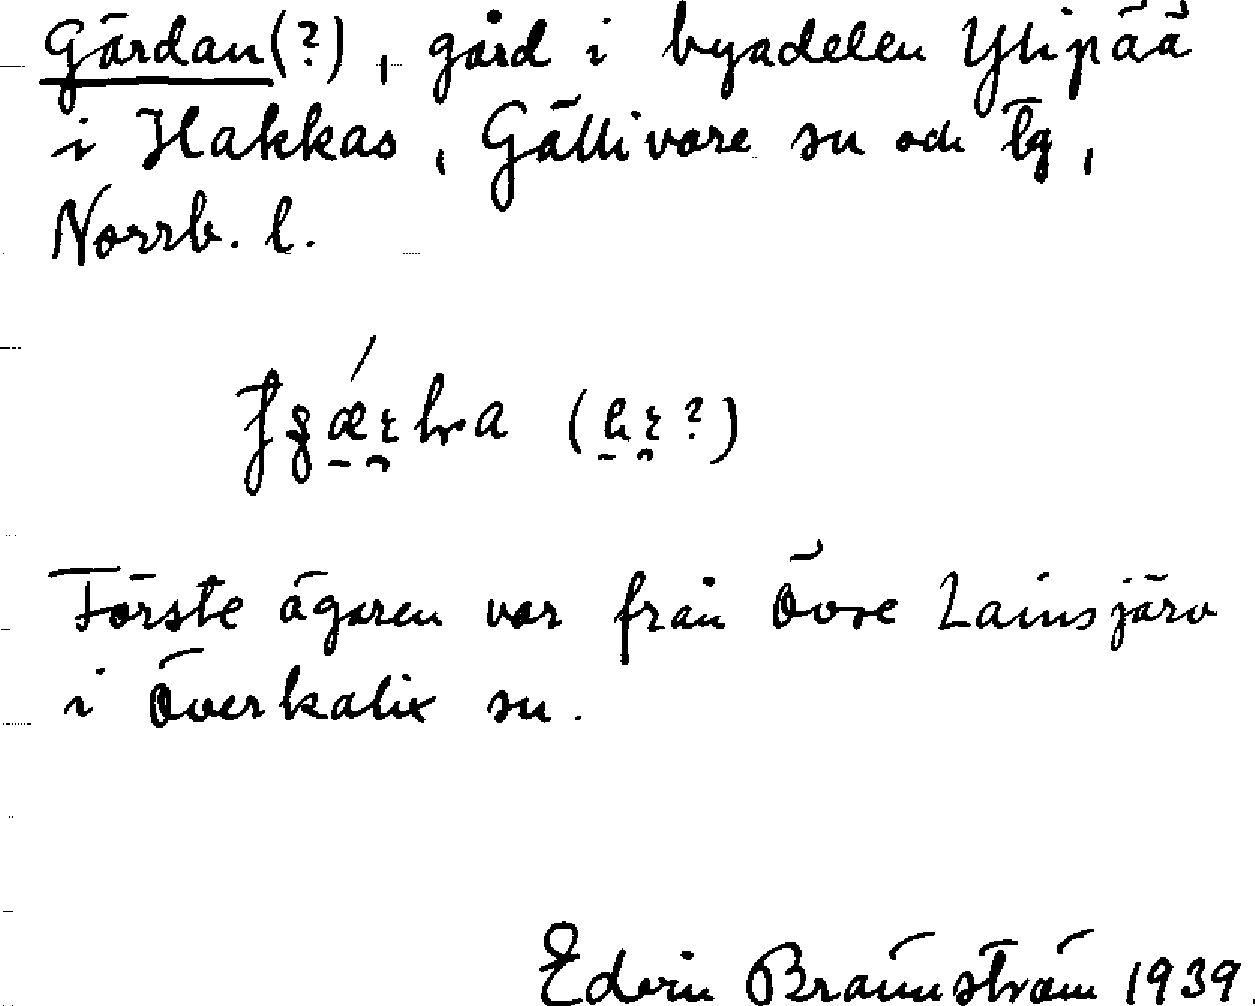 Gärdan(?), gård i byadelen Ylipää
i Hakkas, Gällivare sn och tg,
Norrb. l.
Förste ägaren var från Övre Lainsjärv
i Överkalix sn.
Edvin Brännström 1939.